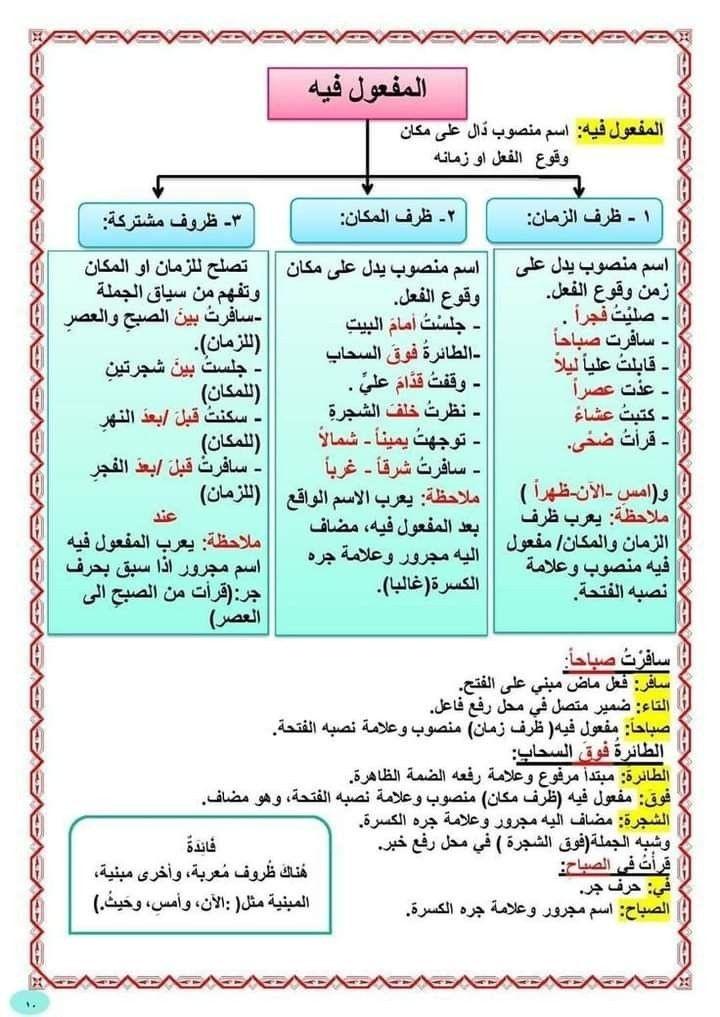 المفعول فيه
المفعول فيه: اسم منصوب دُال على مكان
وقوع الفعل او زمانه
١ - ظرف الزمان:
اسم منصوب يدل على
زمن وقوع الفعل.
- صليْتُ فجراً .
- سافرت صباحاً
- قابلتُ علياً ليلاً
- عدْت عصراً
- كتبتُ عشاءً
- قرأتُ ضحًى.
و(امسِ -الآن-ظهراً )
ملاحظة: يعرب ظرف
الزمان والمكان/ مفعول
فيه منصوب وعلامة
نصبه الفتحة.
٢- ظرف المكان:
اسم منصوب يدل على مكان
وقوع الفعل.
- جلسْتُ أمامَ البيتِ
-الطائرةُ فوقَ السحابِ
- وقفتُ قدَّامَ عليٍّ .
- نظرتُ خلفَ الشجرةِ
- توجهتُ يميناً - شمالاً
- سافرتُ شرقاً - غرباً
ملاحظة: يعرب الاسم الواقع
بعد المفعول فيه، مضاف
اليه مجرور وعلامة جره
الكسرة(غالبا).
٣- ظروف مشتركة:
تصلح للزمان او المكان
وتفهم من سياق الجملة
-سافرتُ بينَ الصبحِ والعصرِ
(للزمان).
- جلستُ بينَ شجرتينِ
(للمكان)
- سكنتُ قبلَ /بعدَ النهرِ
(للمكان)
- سافرتُ قبلَ /بعدَ الفجرِ
(للزمان)
عند
ملاحظة: يعرب المفعول فيه
اسم مجرور اذا سبق بحرف
جر:(قرأت من الصبحِ الى
العصر)
سافرْتُ صباحاً:
سافر: فعل ماض مبني على الفتح.
التاء: ضمير متصل في محل رفع فاعل.
صباحاً: مفعول فيه( ظرف زمان) منصوب وعلامة نصبه الفتحة.
الطائرةُ فوقَ السحابِ:
الطائرةُ: مبتدأ مرفوع وعلامة رفعه الضمة الظاهرة.
فوقَ: مفعول فيه (ظرف مكان) منصوب وعلامة نصبه الفتحة، وهو مضاف.
الشجرة: مضاف اليه مجرور وعلامة جره الكسرة.
وشبه الجملة(فوق الشجرة ) في محل رفع خبر.
قرأتُ في الصباحِ:
في: حرف جر.
الصباحِ: اسم مجرور وعلامة جره الكسرة.
فَائِدَةٌ
هُناكَ ظُروف مُعربة، وأخرى مبنية،
المبنية مثل( :الآن، وأمسِ، وحَيثُ.)
١٠